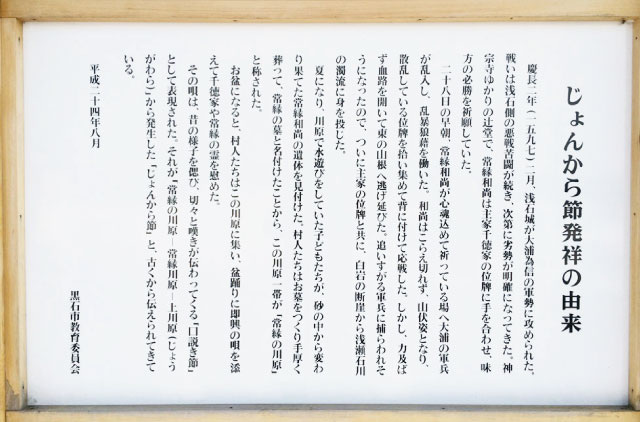 じょんから節発祥の由来
慶長二年（一五九七）二月、浅石城が大浦為信の軍勢に攻められた。
戦いは浅石側の悪戦苦闘が続き、次第に劣勢が明確になってきた。神
宗寺ゆかりの辻堂で、常縁和尚は主家千徳家の位牌に手を合わせ、味
方の必勝を祈願していた。
二十八日の早朝、常縁和尚が心魂込めて祈っている場へ大浦の軍兵
が乱入し、乱暴狼藉を働いた。和尚はこらえ切れず、山伏姿となり、
散乱している位牌を拾い集めて背に付けて応戦した。しかし、力及ば
ず血路を開いて東の山根へ逃げ延びた。追いすがる軍兵に捕らわれそ
うになったので、ついに主家の位牌と共に、白岩の断崖から浅瀬石川
の濁流に身を投じた。
夏になり、川原で水遊びをしていた子どもたちが、砂の中から変わ
り果てた常縁和尚の遺体を見付けた。村人たちはお墓をつくり手厚く
葬って、常縁の墓と名付けたことから、この川原一帯が「常縁の川原」
と称された。
お盆になると、村人たちはこの川原に集い、盆踊りに即興の唄を添
えて千徳家や常縁の霊を慰めた。
その唄は、昔の様子を偲び、切々と嘆きが伝わってくる「口説き節」
として表現された。それが「常縁の川原―常縁川原―上川原（じょう
がわら）」から発生した「じょんから節」と、古くから伝えられてきて
いる。
平成二十四年八月
黒石市教育委員会